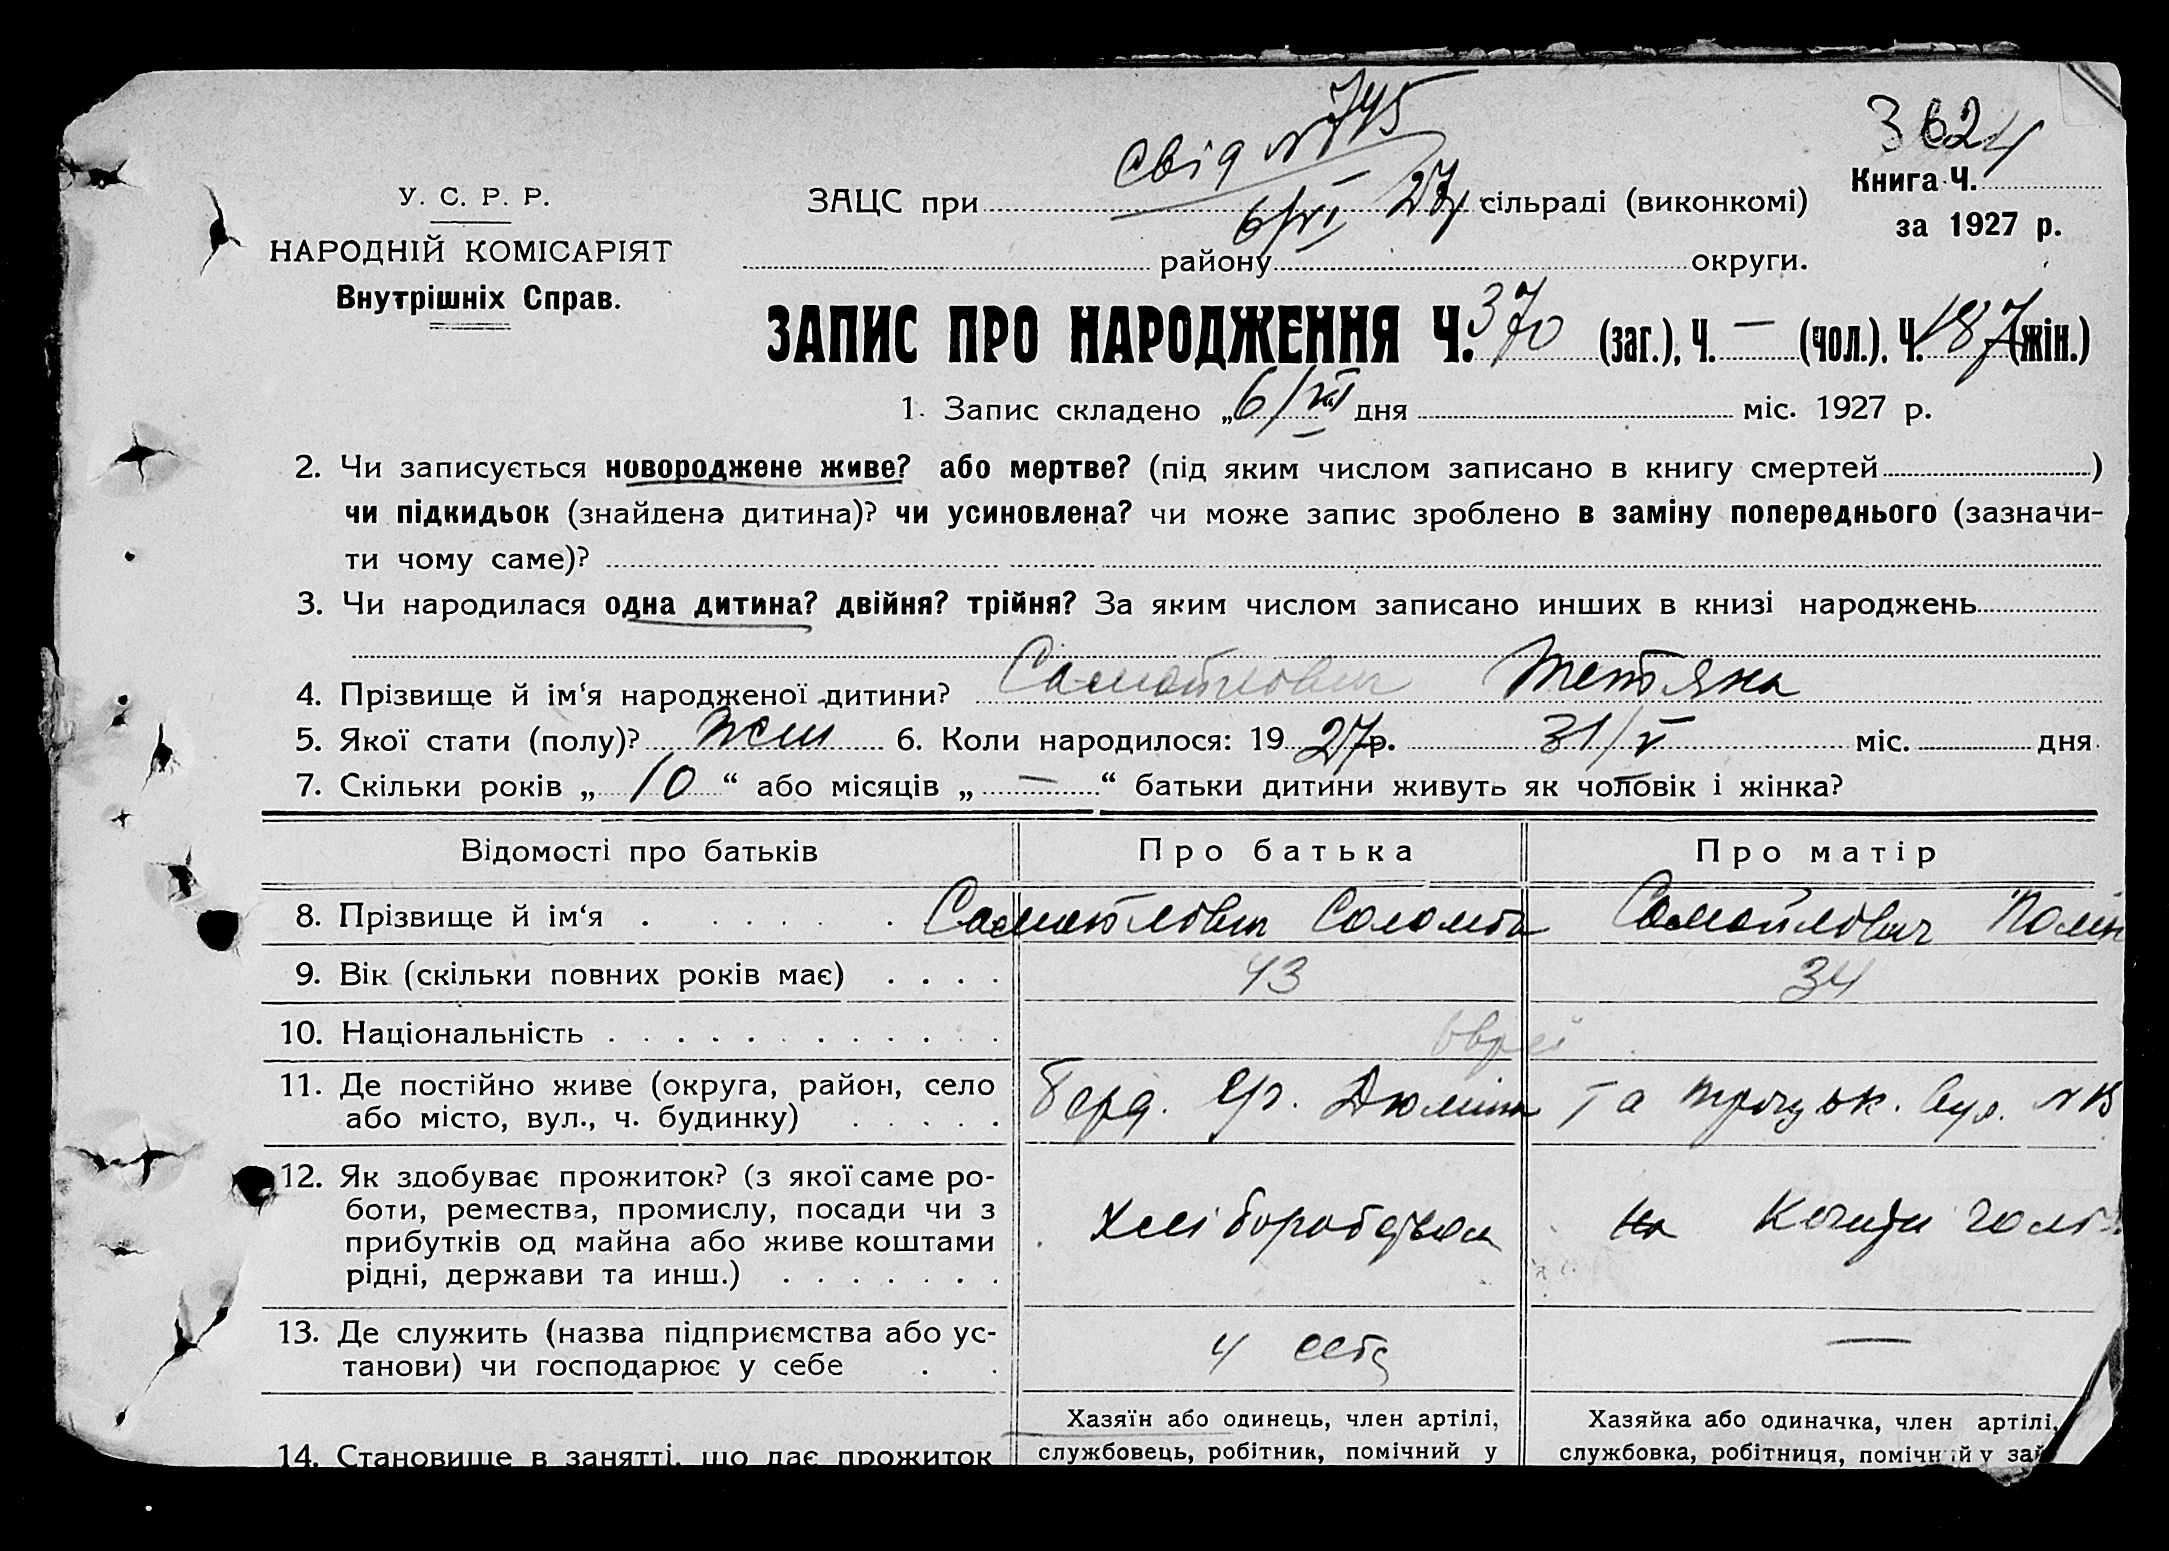 свід №745
3624
У. С. Р. Р.
ЗАЦС при 6/VI 27 сільраді (виконкомі)
Книга Ч.
за 1927 р.
НАРОДНІЙ КОМІСАРІЯТ
Внутрішніх Справ.
району округи.
ЗАПИС ПРО НАРОДЖЕННЯ Ч. 370 (заг.), Ч. — (чол.). Ч. 187 (жін.)
1. Запис складено „6/VI дня міс. 1927 р.
2. Чи записується новороджене живе? або мертве? (під яким числом записано в книгу смертей )
чи підкидьок (знайдена дитина)? чи усиновлена? чи може запис зроблено в заміну попереднього (зазначи-
ти чому саме)?
3. Чи народилася одна дитина? двійня? трійня? За яким числом записано инших в книзі народжень
4. Прізвище й ім‘я народженої дитини? Самойлович Тетяна
5. Якої стати (полу)? жін 6. Коли народилося: 1927р. 31/V міс. дня
7. Скільки років „ 10 “ або місяців „ — “ батьки дитини живуть як чоловік і жінка?
Відомості про батьків Про батька Про матір
8. Прізвище й ім‘я Самойлович Самойлович
9. Вік (скільки повних років має) 43 34
10. Національність євреї
11. Де постійно живе (округа, район, село
або місто, вул., ч. будинку)
Берд. та вул. №
12. Як здобуває прожиток? (з якої саме ро-
боти, ремества, промислу, посади чи з
прибутків од майна або живе коштами
рідні, держави та инш.)
хліборобством на
13. Де служить (назва підприємства або ус-
танови) чи господарює у себе
у себе —
Хазяїн або одинець, член артілі, Хазяйка або одиначка, член артілі,
14. Становище в занятті, що дає прожиток службовець, робітник, помічний у службовка, робітниця, помічний у